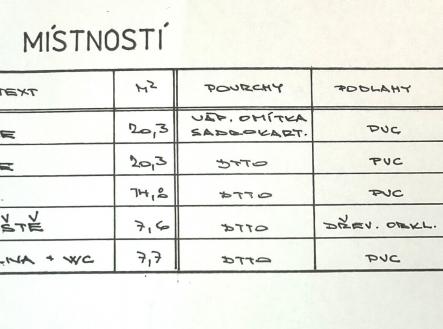 MÍSTNOSTÍ
TEXT M² POVRCHY PODLAHY
E 20,3 VÁP. OMÍTKA SADROKART. PVC
E 20,3 DTTO PVC
14,8 DTTO PVC
IŠTĚ 7,6 DTTO DŘEV. OBKL.
LNA + WC 7,7 DTTO PVC